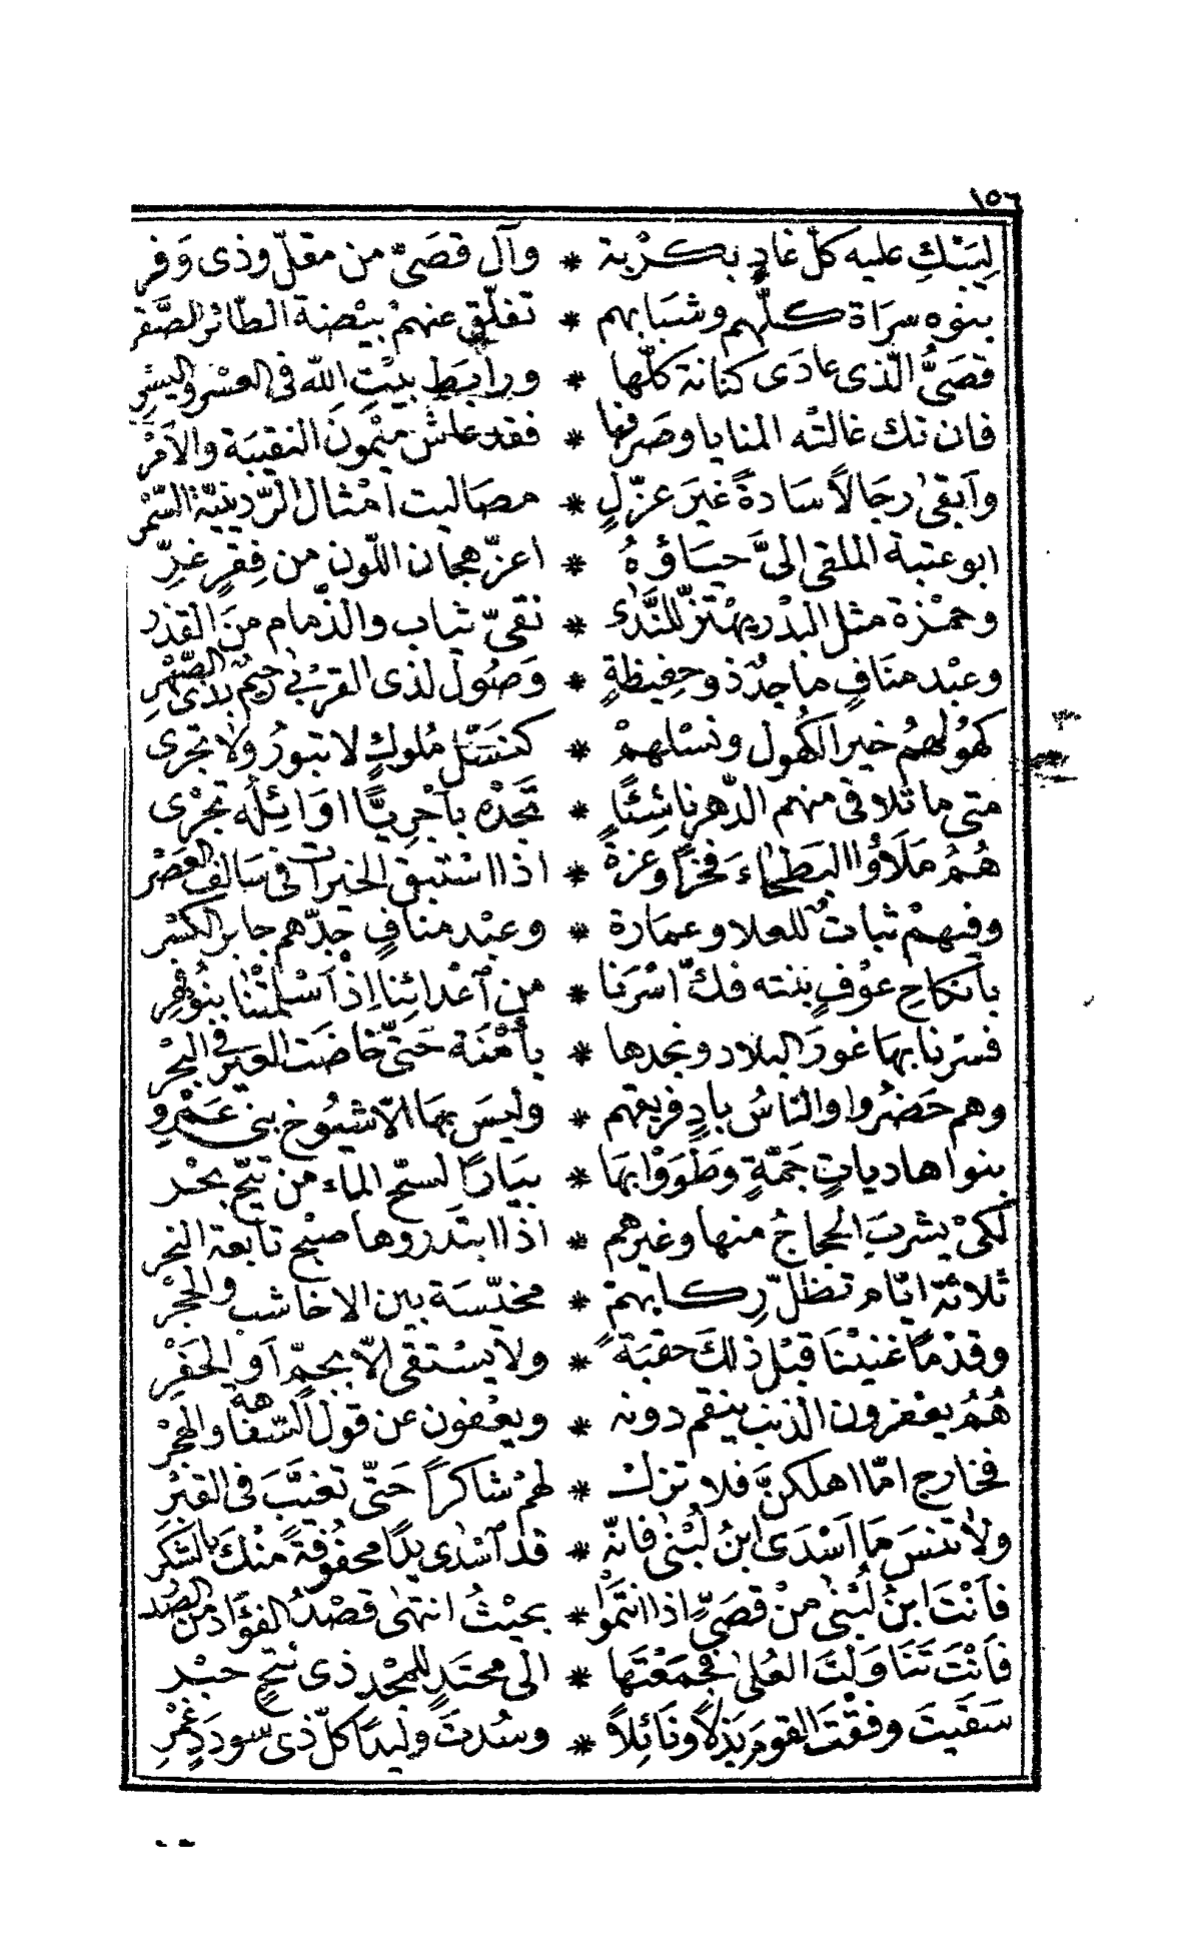 ١٥٦
لِيَبْكِ عليه كلّ غادٍ بكُرْبة * وآل قصَيّ من مقلّ وذى وَفر
بنوه سرَاة كلّهم وشبَابهم * تفلّق عنهمْ بيْضة الطّائر الصَّقر
قصَىُّ الّذى عادَى كنانة كلّها * ورابَط بيْتِ الله فى العسْر واليسْرِ
فان تك غالتْه المنايا وصَرفها * فقد عاش ميْمونَ النقيبَة والاَمْرِ
وآبقىٰ رجَالاً سَادةً غيَر عزّلٍ * مصَاليت اَمْثال الرّدينيّة السّمْر
ابو عتبة الملقى الىَّ حبَاؤهُ * اعزّ هجان اللّون من فِقرٍ غرِّ
وحمْزة مثل البدْر يهْتزّ للنَّدٰى * نقىّ ثياب والذّمام منَ القذر
وعبْد منَافٍ ماجدٌ ذو حفِيظةٍ * وَصُول لذى القربٰى رحيْم بذى الصِّهْرِ
كهُولهمُ خير الكهُول ونسْلهمْ * كنسْل مُلوكٍ لا تبورُ ولا تجرى
متى ما تلاقى منهم الدّهر ناشِئًا * تجَدْه باَجْرِيَّا اوَائِلِه تجْرى
هُمُ مَلَاؤُا البَطحَاءَ فخْرًا وعزةً * اذا اسْتبق الخيرات فى سَالف العصْر
وفيهمْ ثباتٌ للعلا وعمَارة * وعبْد منافٍ جدّهم جابر الكسْر
باِنكاحِ عوْفٍ بنته فكّ اسْرَنا * من اَعْدائِنا اِذْ اَسْلمتْنا بنُو فهِر
فسْرنا بهَا غورَ البلاد ونجدها * باَمْنَة حَتىّ خاضت العير فى البحْرِ
وهم حَضرُوا والناسُ بادٍ فريقهم * وليسَ بهَا الّا شيُوخ بنى عَمْروٍ
بنوا هادياتٍ جَمّةٍ وطَوَوْا بهَا * بيَارًا لسحّ الماء من ثَجّ بحْر
لكىْ يشربَ الحجاجُ منها وغيرهم * اذا ابتَدَروها صبْح تابعة النحْر
ثلاثةَ ايّام تظلّ رِكابهمْ * مخيّسَة بين الاخاشب والحجْر
وقدْمًا غنيْنَا قبْل ذلكَ حقبَة * ولا يسْتقى الّا بجمٍّ اَو الحَفْر
هُمُ يغْفرون الذنب ينقم دونه * ويعْفون عن قول السّفاهة والهجْر
فخارج امّا اهلكنَّ فلا تزلْ * لهمْ شاكراً حَتّى تغيَّبَ فى القبْر
ولا تنسَ مَا اَسْدَى ابنُ لُبْنٰى فانّه * قد اَسْدٰى يدًا محفُوفةً منْكَ بالشكْر
فاَنْتَ ابنُ لُبْنٰى منْ قصَىٍّ اذا انتمَوْا * بحيْثُ انتهٰى قصْدُ الفؤَاد من الصْدر
فاَنْتَ تَنَاوَلتَ العُلٰى فجمَعْتَها * الى محتَدٍ للمجْد ذى ثبَجٍ جبْر
سَفَيتَ وفقْتَ القومَ بَذلاً ونَائِلاً * وسُدتَ وليدًا كلّ ذى سودَدٍ غمْرِ